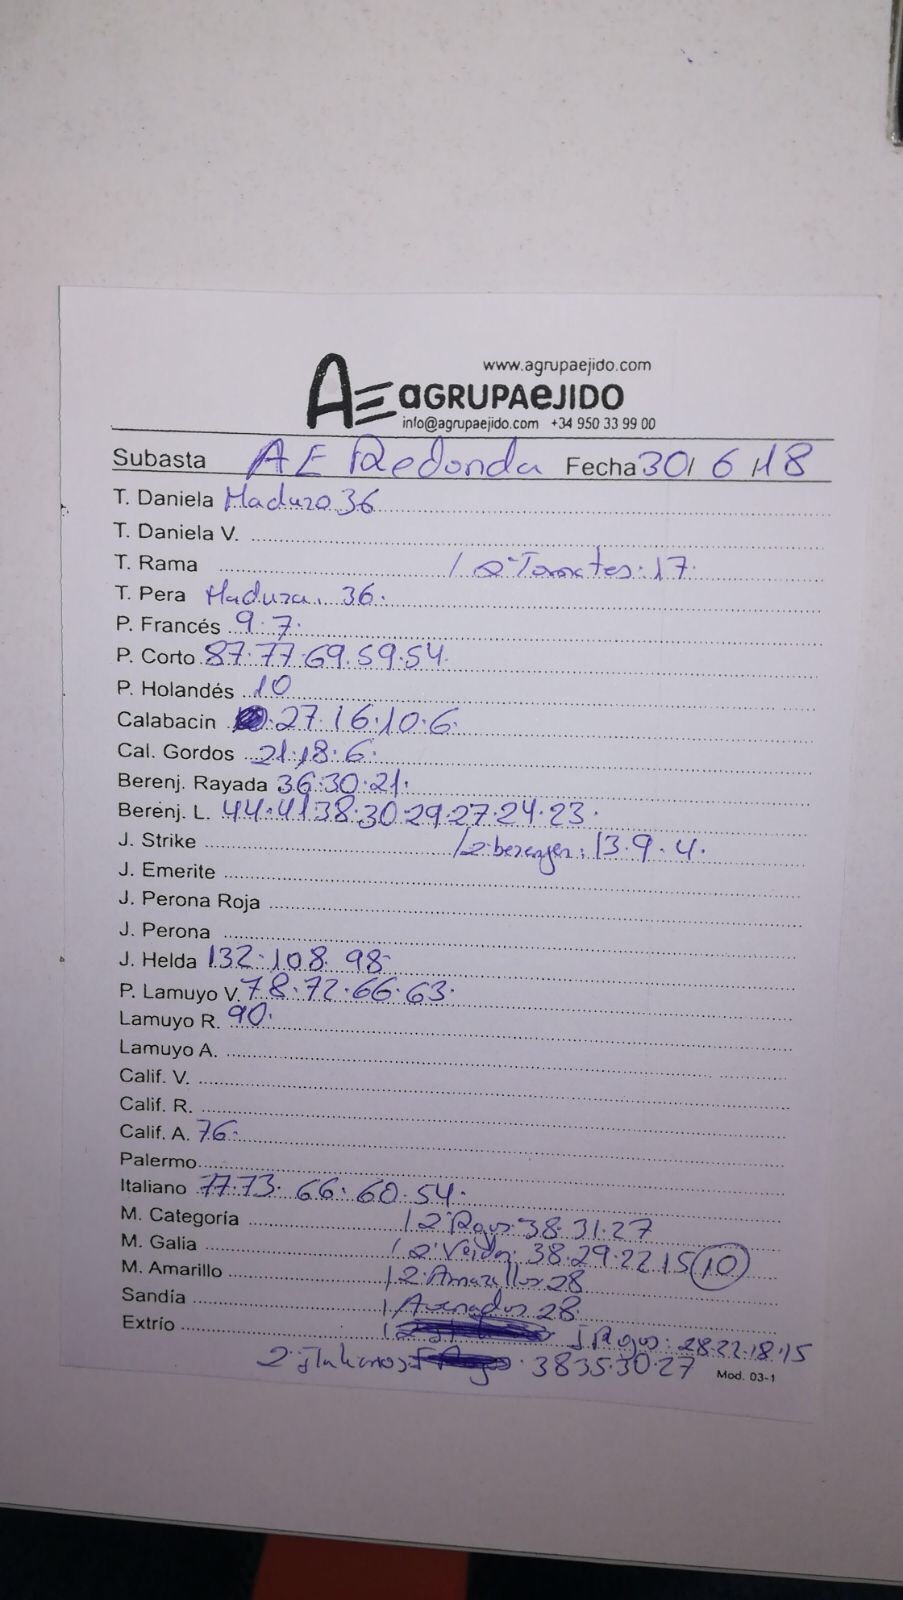 www.agrupaejido.com
AE aGRUPAeJIDO
info@agrupaejido.com +34 950 33 99 00
Subasta AE Redonda Fecha 30/ 6 /18
T. Daniela Maduro 36
T. Daniela V.
T. Rama / 2ª Tomates: 17.
T. Pera Madura. 36.
P. Francés 9.7.
P. Corto 87.77.69.59.54.
P. Holandés 10
Calabacin 27.16.10.6.
Cal. Gordos 21.18.6.
Berenj. Rayada 36.30.21.
Berenj. L. 44.41.38.30.29.27.24.23.
J. Strike / 2ª berenjen: 13.9.4.
J. Emerite
J. Perona Roja
J. Perona
J. Helda 132.108.98
P. Lamuyo V. 78.72.66.63.
Lamuyo R. 90.
Lamuyo A.
Calif. V.
Calif. R.
Calif. A. 76.
Palermo
Italiano 77.73.66.60.54.
M. Categoría / 2ª Rojos 38.31.27
M. Galia / 2ª Verdes: 38.29.22.15 10
M. Amarillo / 2ª Amarillos 28
Sandía / Asurados 28.
Extrío / J Rojos: 28.22.18.15
2ª Italianos 38 35.30.27
Mod. 03-1